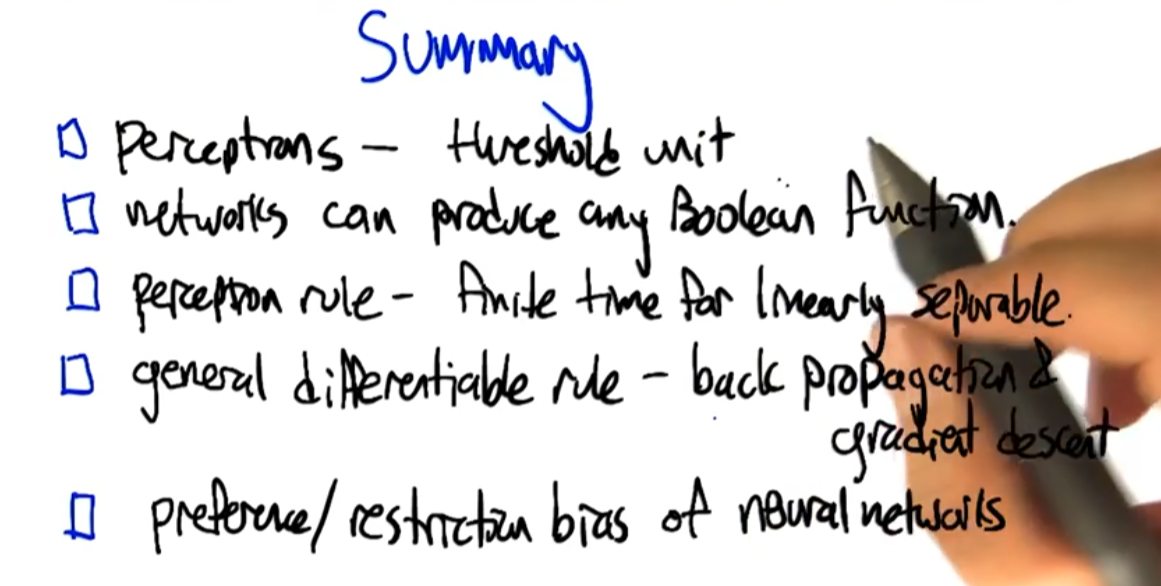 Summary
□ perceptrons - threshold unit
□ networks can produce any Boolean function.
□ perceptron rule - finite time for linearly separable.
□ general differentiable rule - back propagation &
gradient descent
□ preference/restriction bias of neural networks